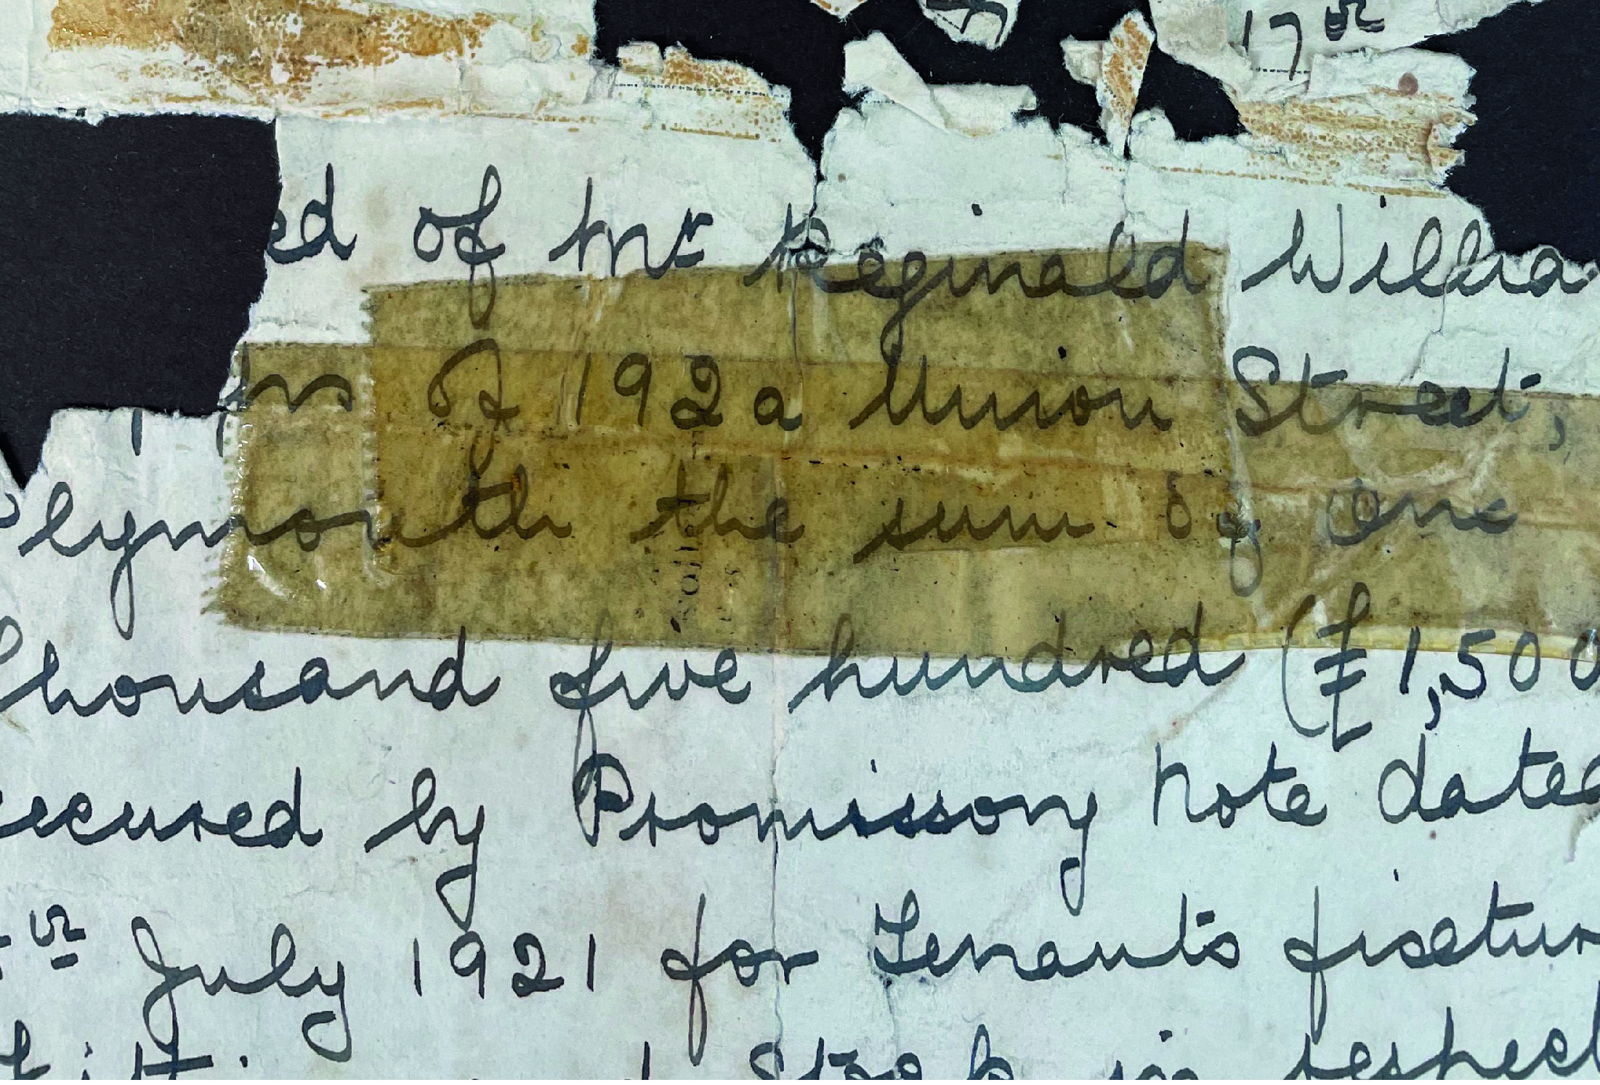 17th
ed of Mr Reginald Willia
of 192a Union Street,
Plymouth the sum of one
thousand five hundred (£1,500
secured by Promissory Note dated
th July 1921 for Tenants fixtur
and Stock in respect